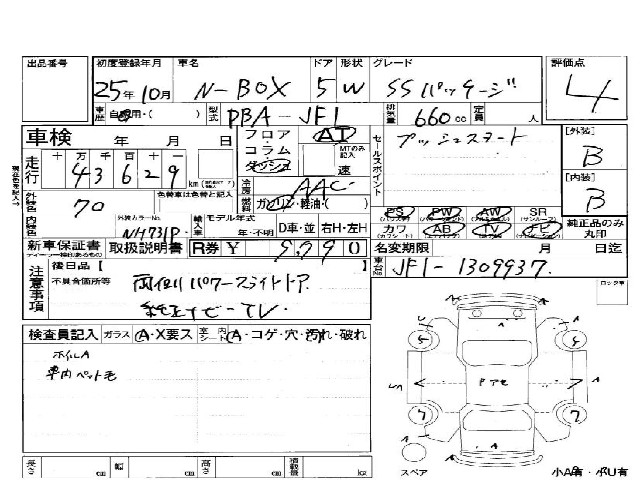 出品番号 初度登録年月 車名 ドア 形状 グレード 評価点
25年10月 N-BOX 5 W SSパッケージ 4
車歴 自家用・( ) 型式 DBA-JF1 排気量 660cc 定員 人
車検 年 月 日 フロア・コラム・ダッシュ AT MTのみ記入 速 セールスポイント プッシュスタート [外装] B
走行 十 万 千 百 十 一 43629 km
冷房 AAC [内装] B
現在色を記入→ 外装色 70 色替車は色替と記入 燃料 ガソリン・軽油・( )
PS PW AW SR
内装色 外装カラーNo. NH731P 輸入車 モデル年式 年・不明 D車・並 右H・左H カワ AB TV ナビ 純正品のみ丸印
新車保証書 取扱説明書 R券 ¥ 9,790 名変期限 月 日迄
注意事項 [後日品] 車台 JF1-1309937
不具合箇所等 両側パワースライドドア ロック車
純正ナビ・TV
検査員記入 ガラス A・X要ス 室内シート A・コゲ・穴・汚れ・破れ
ホイルA
車内ペット毛
長さ cm 幅 cm 高さ cm 積載量 kg
スペア 小A有・小U有